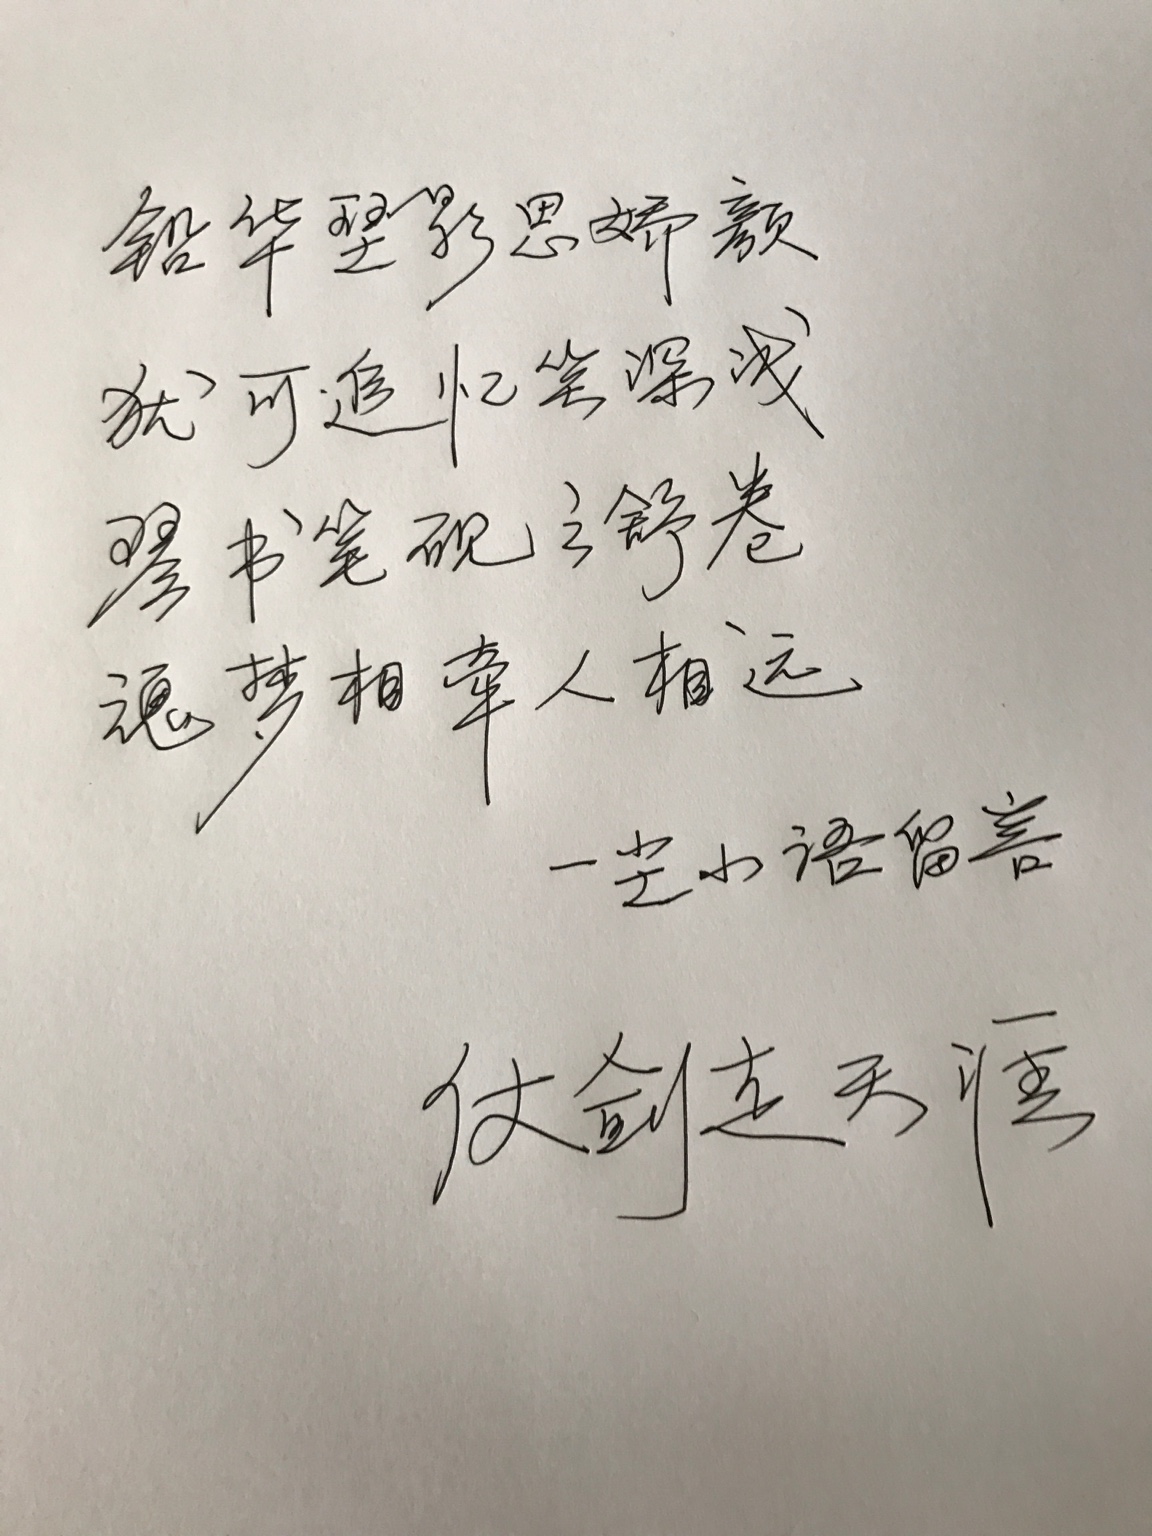 铅华翠影思娇颜
犹可追忆笑深浅
琴书笔砚之舒卷
魂梦相牵人相远
一尘小语留言
仗剑走天涯